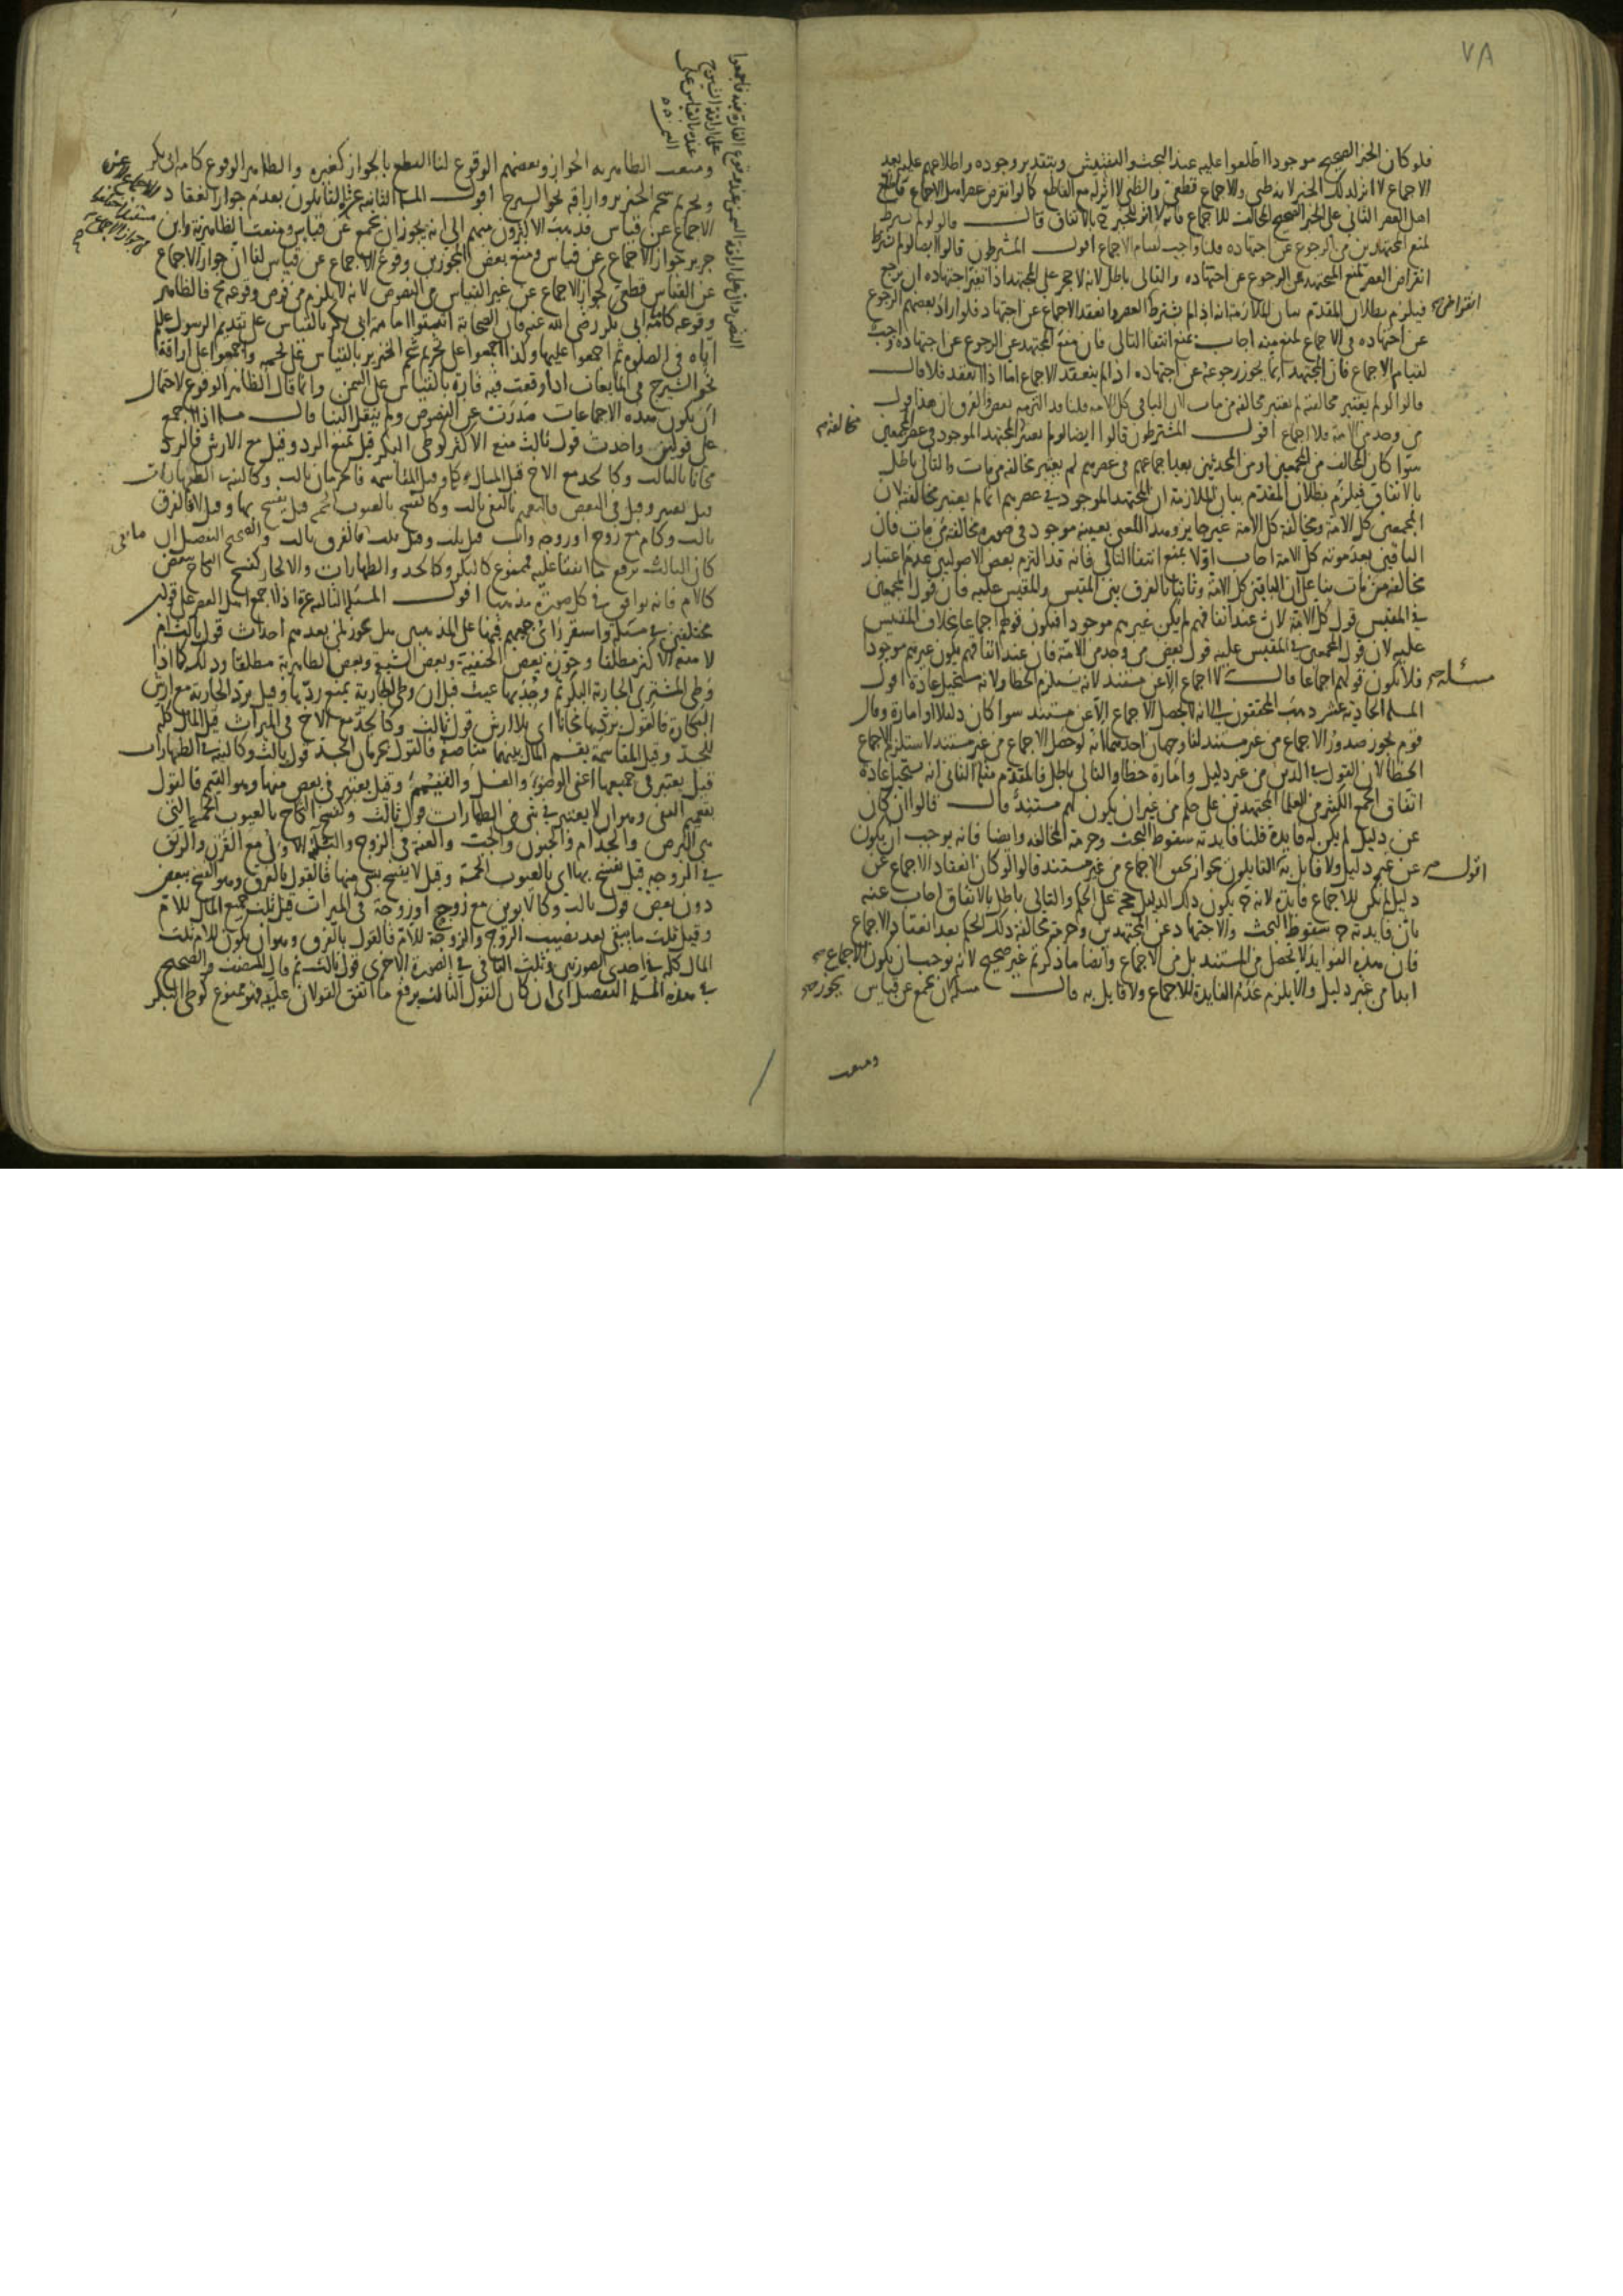 ٧٨
فلو كان الخبر الصحيح موجودا اطلعوا عليه عند البحث والتفتيش وبتقدير وجوده واطلاعهم عليه بعد
الاجماع لا اثر لذلك الخبر لانه ظني والاجماع قطعي والظني لا اثر له مع القاطع كما لو انقرض عصر اهل الاجماع
اهل العصر الثاني على الخبر الصحيح المخالف للاجماع فانه لا اثر للخبر ح بالاتفاق قال قالوا لو لم يشترط
لمنع المجتهد من الرجوع عن اجتهاده قلنا واجب لقيام الاجماع اقول المشترطون قالوا ايضا لو لم يشترط
انقراض العصر لمنع المجتهد عن الرجوع عن اجتهاده والتالي باطل لانه لا حجر على المجتهد اذا تغير اجتهاده ان يرجع
فيلزم بطلان المقدم بيان الملازمة انه اذا لم يشترط العصر وانعقد الاجماع عن اجتهاد فلو اراد بعضهم الرجوع
انقراض
عن اجتهاده في الاجماع لمنع منه اجاب بمنع انتفا التالي فان منع المجتهد عن الرجوع عن اجتهاده واجب
لقيام الاجماع فان المجتهد انما يجوز رجوعه عن اجتهاده اذا لم ينعقد الاجماع اما اذا انعقد فلا قال
قالوا لو لم يعتبر مخالفته لم يعتبر مخالفة من مات لان الباقي كل الامة قلنا قد التزمه بعض والفرق ان هذا قول
من وجد من الامة فلا اجماع اقول المشترطون قالوا ايضا لو لم يعتبر المجتهد الموجود في عصر المجمعين
مخالفة
سوا كان المخالف من المجمعين او من المحدثين بعد اجماعهم في عصرهم لم يعتبر مخالفة من مات والتالي باطل
بالاتفاق فيلزم بطلان المقدم بيان الملازمة ان المجتهد الموجود في عصرهم انما لم يعتبر مخالفته لان
المجمعين كل الامة ومخالفة كل الامة غير جايز وهذا المعنى بعينه موجود في صورة مخالفة من مات فان
الباقين بعد موته كل الامة اجاب اولا بمنع انتفا التالي فانه قد التزم بعض الاصوليين عدم اعتبار
مخالفة من مات بنا على ان الباقين كل الامة وثانيا بالفرق بين المقيس والمقيس عليه فان قول المجمعين
في المقيس قول كل الامة لان عند اتفاقهم لم يكن غيرهم موجودا فيكون قولهم اجماعا بخلاف المقيس
عليه لان قول المجمعين في المقيس عليه قول بعض من وجد من الامة فان عند اتفاقهم يكون غيرهم موجودا
فلا يكون قولهم اجماعا قال لا اجماع الا عن مستند لانه يستلزم الخطا ولانه مستحيل عادة اقول
مسئلة
المسلة الحادية عشر ذهب المحققون الى انه لا يحصل الاجماع الا عن مستند سوا كان دليلا او امارة وقال
قوم يجوز صدور الاجماع من غير مستند لنا وجهان احدهما انه لو حصل الاجماع من غير مستند لاستلزم الاجماع
الخطا لان القول في الدين من غير دليل وامارة خطا والتالي باطل فالمقدم مثله الثاني انه يستحيل عادة
اتفاق الجمع الكثير من العلما المجتهدين على حكم من غير ان يكون لهم مستند قال قالوا ان كان
عن دليل لم يكن له فايدة قلنا فايدته سقوط البحث وحرمة المخالفة وايضا فانه يوجب ان يكون
عن غير دليل ولا قايل به القايلون بجواز تحقق الاجماع من غير مستند قالوا لو كان انعقاد الاجماع عن
اقول
دليل لم يكن للاجماع فايدة لانه ح يكون ذلك الدليل حجة على الحكم والتالي باطل بالاتفاق اجاب عنه
بان فايدته ح سقوط البحث والاجتهاد عن المجتهدين وحرمة مخالفة ذلك الحكم بعد انعقاد الاجماع
فان هذه الفوايد لا تحصل من المستند بل من الاجماع وايضا ما ذكرتم غير صحيح لانه يوجب ان يكون الاجماع
ابدا من غير دليل والا يلزم عدم الفايدة للاجماع ولا قايل به قال مسئلة ان يجمع عن قياس
يجوز
ومنعت
ومنعت الظاهرية الجواز وبعضهم الوقوع لنا القطع بالجواز كغيره والظاهر الوقوع كامامة ابي بكر
وتحريم شحم الخنزير واراقة نحو الشيرج اقول المسلة الثانية عشر القايلون بعدم جواز انعقاد
الاجماع عن قياس فذهب الاكثرون منهم الى انه يجوز ان يجمع عن قياس ومنعت الظاهرية وابن
جرير جواز الاجماع عن قياس ومنع بعض المجوزين وقوع الاجماع عن قياس لنا ان جواز الاجماع
عن القياس قطعي كجواز الاجماع عن غير القياس من النصوص لانه لا يلزم من فرض وقوعه مح فالظاهر
وقوعه كامامة ابي بكر رضي الله عنه فان الصحابة اثبتوا امامة ابي بكر بالقياس على تقديم الرسول عليلم
اياه في الصلوة ثم اجمعوا عليها وكذا اجمعوا على تحريم شحم الخنزير بالقياس على لحمه واجمعوا على اراقة
نحو الشيرج في المايعات اذا وقعت فيه فارة بالقياس على السمن وانما قال الظاهر الوقوع لاحتمال
ان يكون هذه الاجماعات صدرت عن النصوص ولم ينقل الينا قال مسلة اذا اجمع
على قولين واحدث قول ثالث منع الاكثر كوطى البكر قيل يمنع الرد وقيل مع الارش فالرد
مجانا ثالث وكالجد مع الاخ قيل المال كله وقيل المقاسمة فالحرمان ثالث وكالنية في الطهارات
قيل تعتبر وقيل في البعض فالتعميم بالنفي ثالث وكالفسخ بالعيوب الخمسة قيل يفسخ بها وقيل لا فالفرق
ثالث وكام مع زوج او زوجة واب قيل ثلث وقيل ثلث ما بقي فالفرق ثالث والصحيح التفصيل ان
كان الثالث يرفع ما اتفقا عليه فممنوع كالبكر وكالجد والطهارات والا فجايز كفسخ النكاح ببعض
كالام فانه يوافق في كل صورة مذهبا اقول المسئلة الثالثة عشر اذا اجمع اهل العصر على قولين
مختلفين في مسئلة واستقر راى جميعهم فيها على المذهبين هل يجوز لمن بعدهم احداث قول ثالث ام
لا منعه الاكثر مطلقا وجوزه بعض الحنفية وبعض الشيعة وبعض الظاهرية مطلقا وذلك كما اذا
وطى المشتري الجارية البكر ثم وجد بها عيبا قيل ان وطى الجارية يمنع ردها وقيل برد الجارية مع ارش
البكارة فالقول بردها مجانا اى بلا ارش قول ثالث وكالجد مع الاخ في الميراث قيل المال كله
للجد وقيل المقاسمة يقسم المال بينهما مناصفة فالقول بحرمان الجد قول ثالث وكالنية في الطهارات
قيل يعتبر في جميعها اعني الوضوء والغسل والتيمم وقيل يعتبر في بعض منها وهو التيمم فالقول
بتعميم النفي وهو ان لا يعتبر في شي من الطهارات قول ثالث وكفسخ النكاح بالعيوب الخمسة التي
هي البرص والجذام والجنون والجب والعنة في الزوج والثلثة الاولى مع القرن والرتق
في الزوجة قيل يفسخ بها اي بالعيوب الخمسة وقيل لا يفسخ بشي منها فالقول بالفرق وهو الفسخ ببعض
دون بعض قول ثالث وكالابوين مع زوج او زوجة في الميراث قيل ثلث جميع المال للام
وقيل ثلث ما يبقى بعد نصيب الزوج والزوجة للام فالقول بالفرق وهو ان يكون للام ثلث
المال كله في احدى الصورتين وثلث الباقي في الصورة الاخرى قول ثالث ثم قال المصنف والصحيح
في هذه المسلة التفصيل اي ان كان القول الثالث يرفع ما اتفق القولان عليه فهو ممنوع كوطى البكر